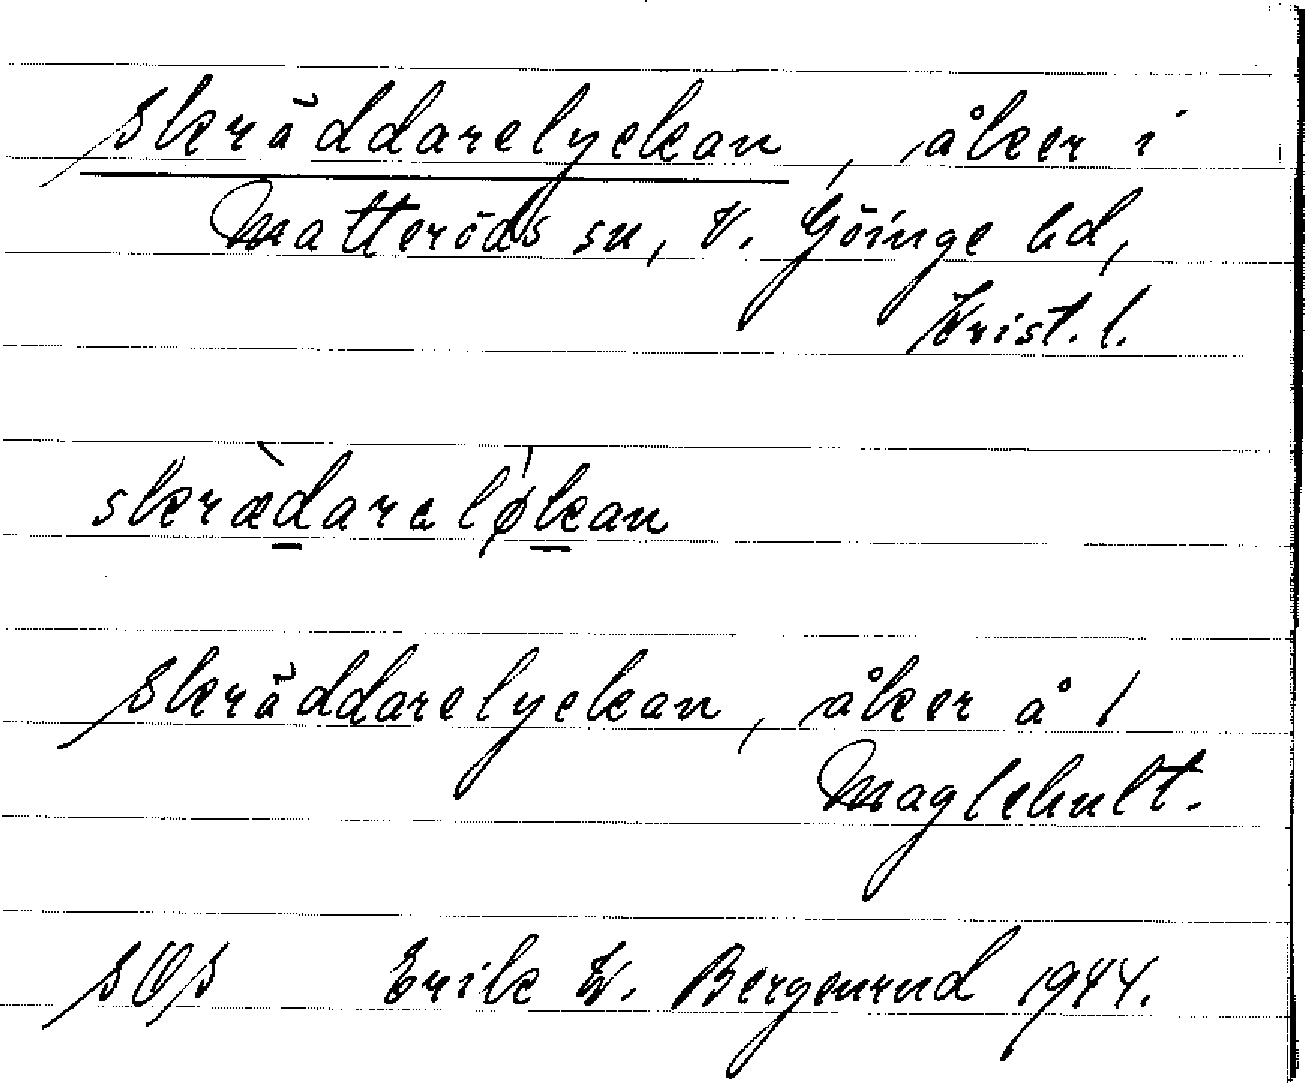 Skräddarelyckan, åker i
Matteröds sn, V. Göinge hd,
Krist. l.
skræ̀dara lø̍kan
Skräddarelyckan, åker å 1
Maglehult.
SOS Erik W. Bergenrud 1944.